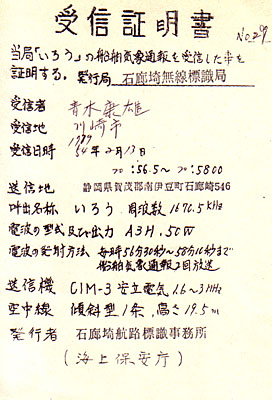 受信証明書
No.29
当局「いろう」の船舶気象通報を受信した事を
証明する。発行局 石廊埼無線標識局
受信者 青木 雄
受信地 川崎市
1979
受信日時 54年2月13日
20:56.5～20:5800
送信地 静岡県賀茂郡南伊豆町石廊崎546
呼出名称 いろう 周波数 1670.5KHz
電波の型式及び出力 A3H, 50W
電波の発射方法 毎時56分30秒～58分16秒まで
船舶気象通報2回放送
送信機 CIM-3 安立電気 1.6～3MHz
空中線 傾斜型1条, 高さ19.5m
発行者 石廊埼航路標識事務所
(海上保安庁)